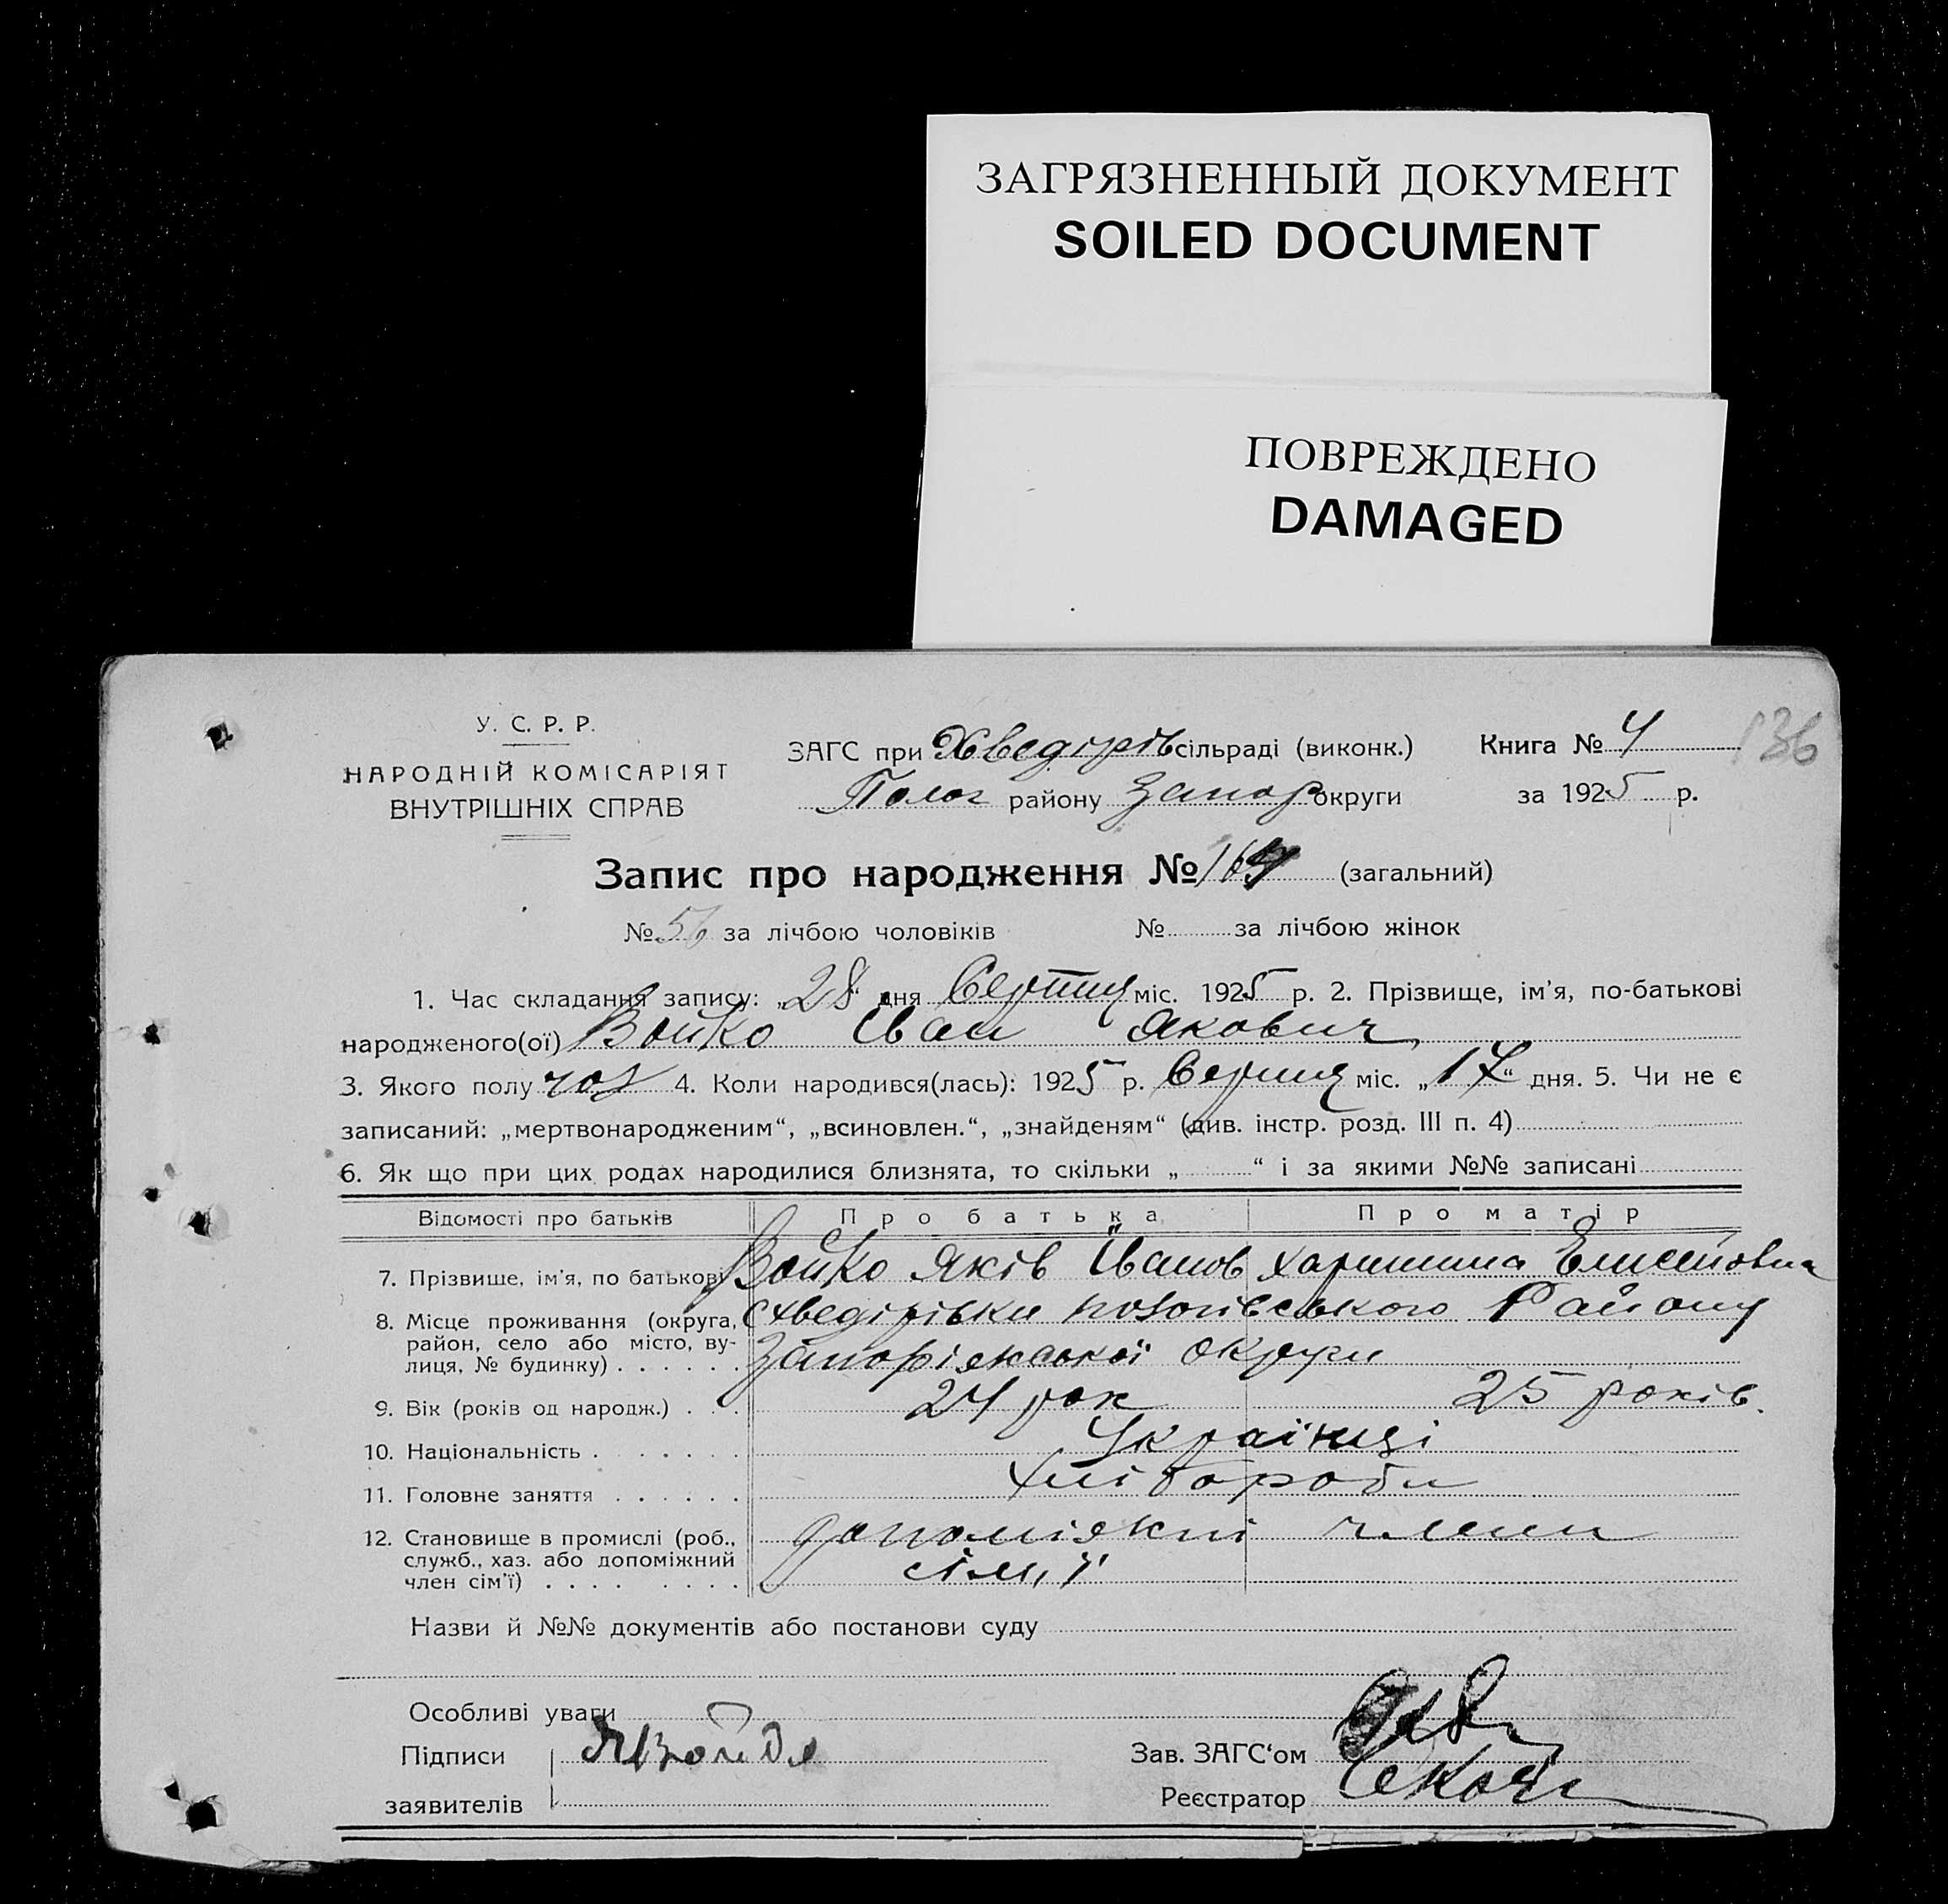 ЗАГРЯЗНЕННЫЙ ДОКУМЕНТ
SOILED DOCUMENT
ПОВРЕЖДЕНО
DAMAGED
У. С. Р. Р.
НАРОДНІЙ КОМІСАРІЯТ
ВНУТРІШНІХ СПРАВ
ЗАГС при Хведірів сільраді (виконк.)
Полог району Запор округи
Книга № 4
за 1925 р.
136
Запис про народження № (загальний)
№ 56 за лічбою чоловіків № за лічбою жінок
1. Час складання запису: „28“ дня Серпня міс. 1925 р. 2. Прізвище, ім'я, по-батькові
народженого(ої) Бойко Іван Якович
3. Якого полу чол 4. Коли народився(лась): 1925 р. Серпня міс. „17“ дня. 5. Чи не є
записаний: „мертвонародженим“, „всиновлен.“, „знайденям“ (див. інстр. розд. III п. 4)
6. Як що при цих родах народилися близнята, то скільки „ “ і за якими №№ записані
Відомості про батьків Про батька Про матір
7. Прізвище, ім'я, по батькові Бойко Яків Іванов Харитина Елисейовна
8. Місце проживання (округа, район, село або місто, вулиця, № будинку) Хведірівки пологівського Району
Запоріжської округи
9. Вік (років од народж.) 24 рок 25 років.
10. Національність Українці
11. Головне заняття Хлібороби
12. Становище в промислі (роб., служб., хаз. або допоміжний член сім'ї) допоміжні члени
сім'ї
Назви й №№ документів або постанови суду
Особливі уваги
Підписи
заявителів
Зав. ЗАГС'ом
Реєстратор